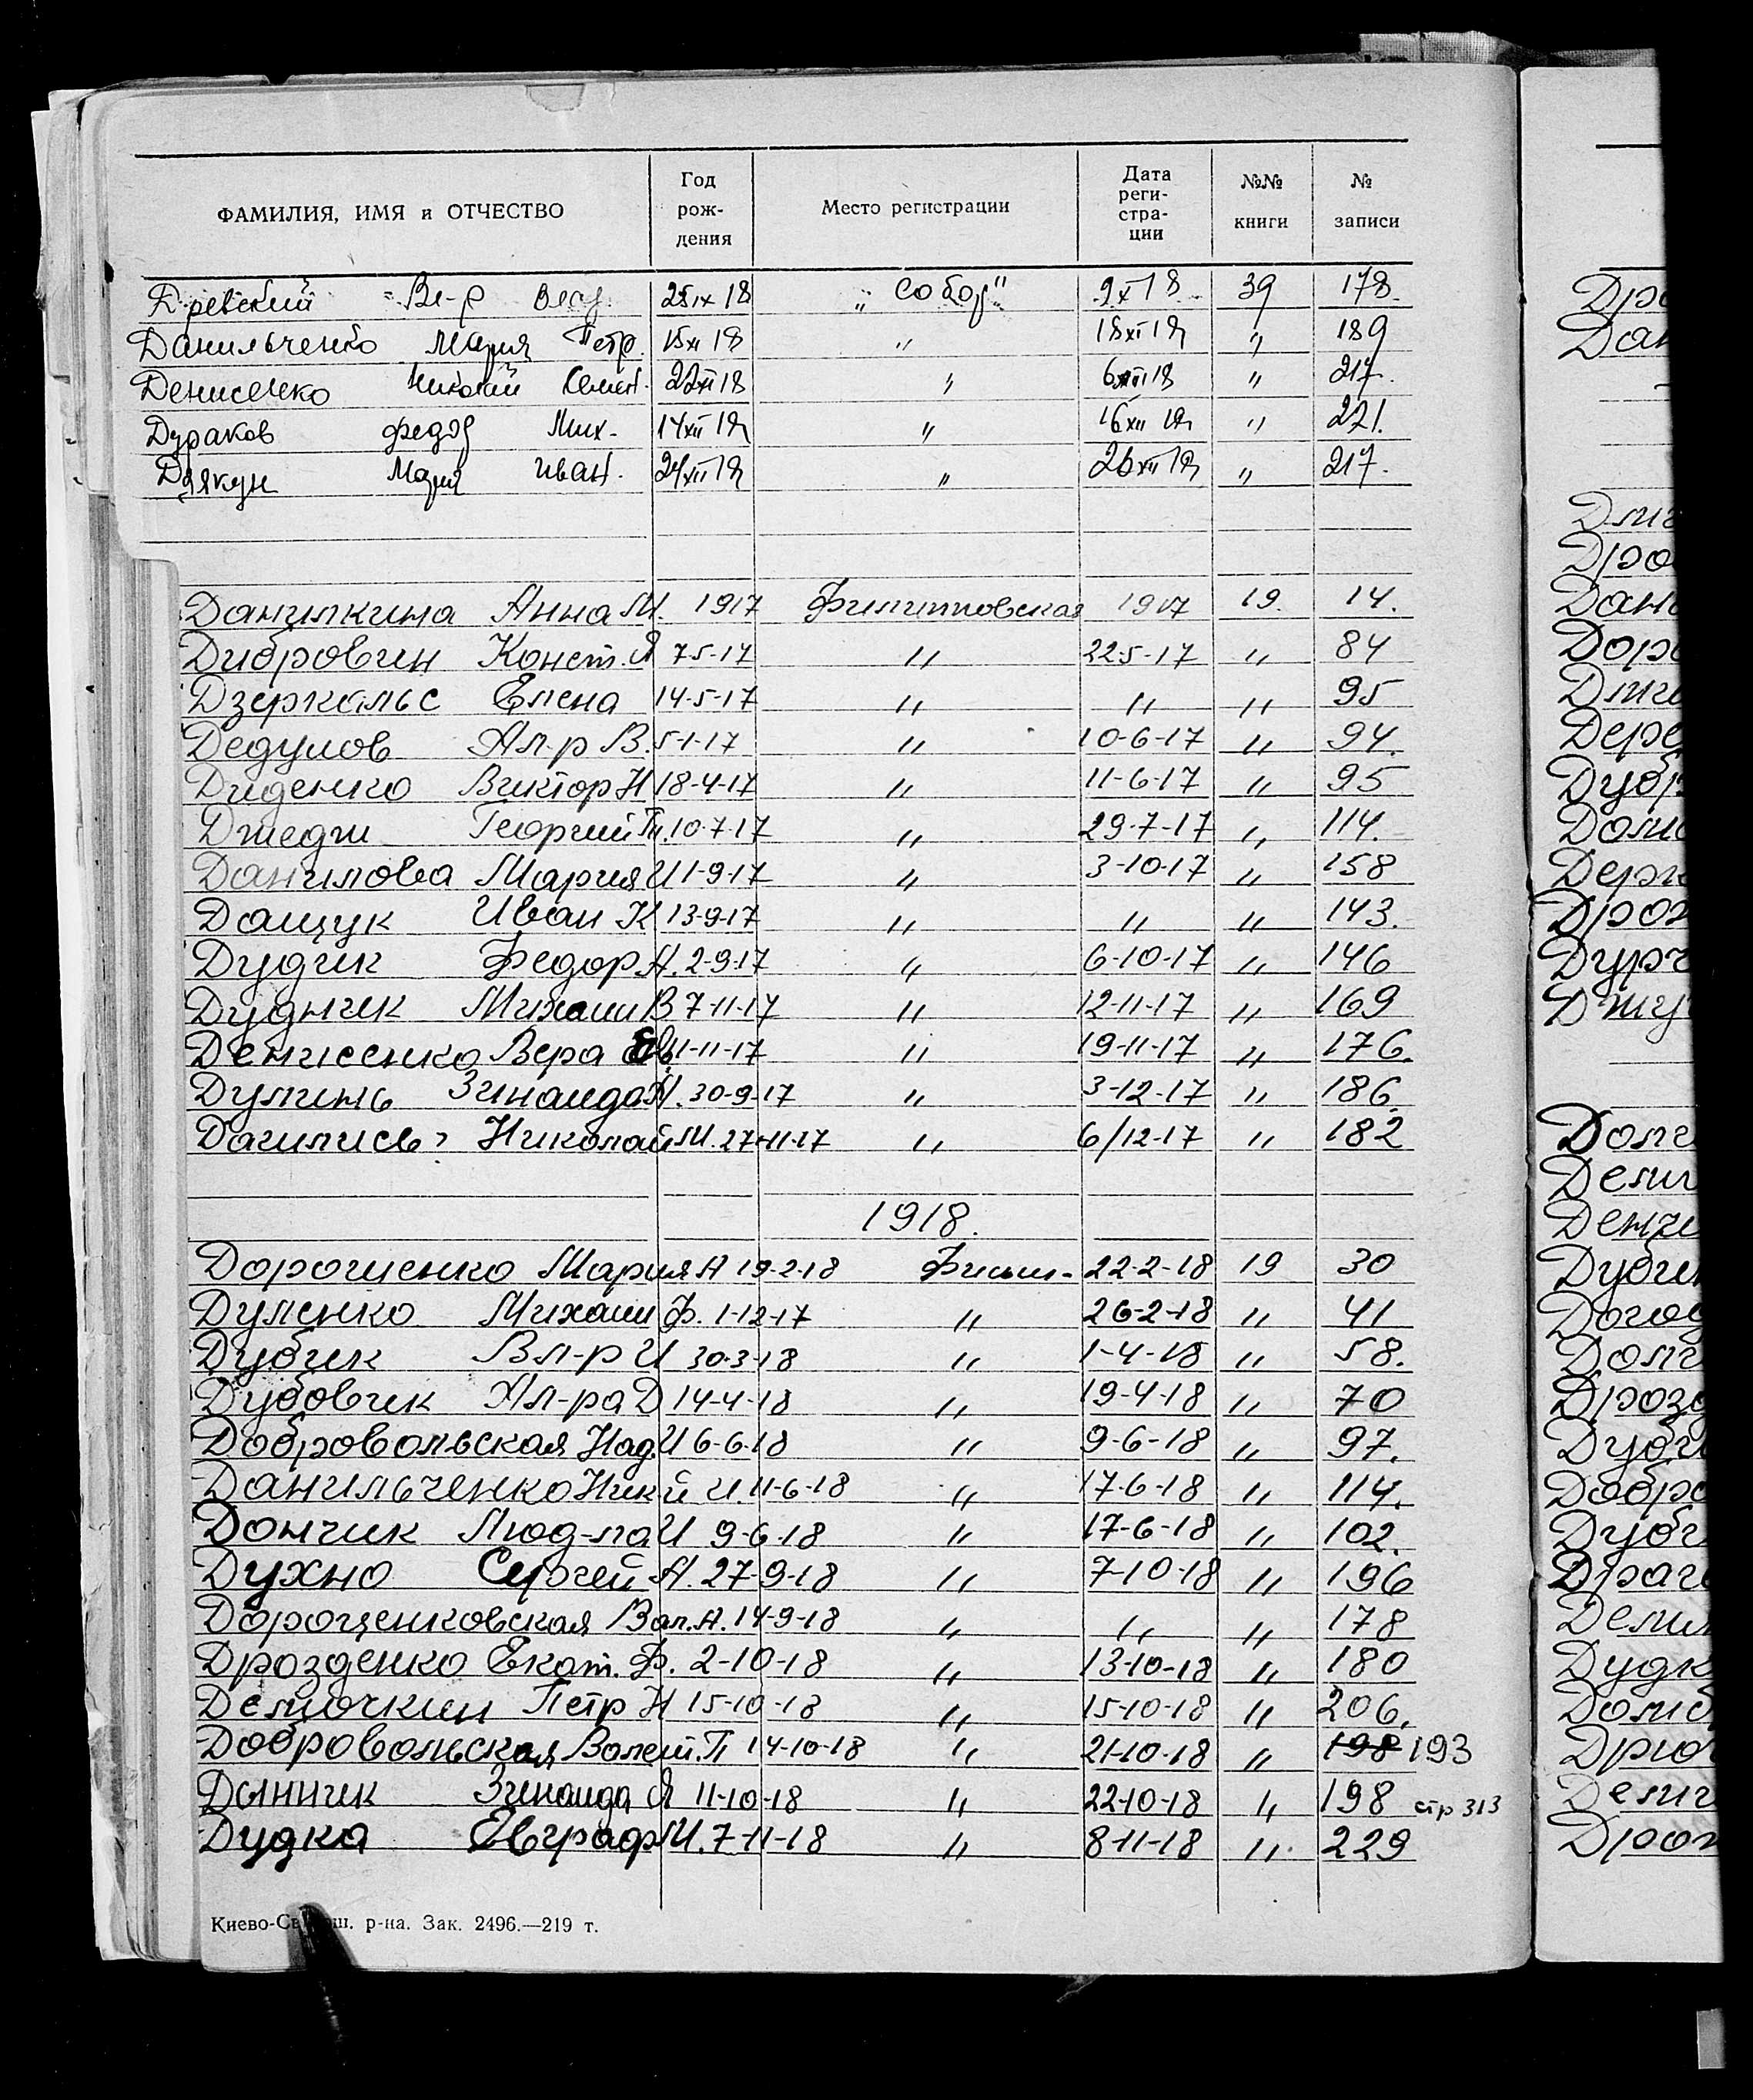 ФАМИЛИЯ, ИМЯ и ОТЧЕСТВО Год рождения Место регистрации Дата регистрации №№ книги № записи
Древский Вл-р 25 IX 18 „Собор" 9 X 18 39 178
Данильченко Мария Петр. 15 XI 18 " 18 XI 18 " 189
Денисенко Николай Семен. 22 XI 18 " 6 XII 18 " 217.
Дураков Федор Мих. 14 XII 18 " 16 XII 18 " 221.
Мария Иван. 24 XII 18 " 26 XII 18 " 217.
Данилкина Анна М. 1917 Филипповская 1917 19. 14.
Дибровин Конст. Я 7-5-17 " 22-5-17 " 84
Дзеркальс Елена 14-5-17 " " " 95
Дедулов Ал-р В. 5-1-17 " 10-6-17 " 94.
Диденко Виктор Н 18-4-17 " 11-6-17 " 95
Георгий П. 10-7-17 " 29-7-17 " 114.
Данилова Мария И 1-9-17 " 3-10-17 " 158
Дащук Иван К 13-9-17 " " " 143.
Дудик Федор А. 2-9-17 " 6-10-17 " 146
Дудчик Михаил В 7-11-17 " 12-11-17 " 169
Денисенко Вера 11-11-17 " 19-11-17 " 176.
Дулинь Зинаида 30-9-17 " 3-12-17 " 186
Николай М. 27-11-17 " 6/12-17 " 182
1918.
Дорошенко Мария А 19-2-18 Филип- 22-2-18 19 30
Дуленко Михаил Ф. 1-12-17 " 26-2-18 " 41
Дубик Вл-р И 30-3-18 " 1-4-18 " 58.
Дубовик Ал-ра Д 14-4-18 " 19-4-18 " 70
Добровольская Над. И 6-6-18 " 9-6-18 " 97.
Данильченко Ник-й И. 11-6-18 " 17-6-18 " 114.
Дончик Люд-ла И 9-6-18 " 17-6-18 " 102.
Духно Сергей А. 27-9-18 " 7-10-18 " 196
Дорошенковская Вал. А. 14-9-18 " " " 178
Дрозденко Екат. Ф. 2-10-18 " 13-10-18 " 180
Демочкин Петр Н 15-10-18 " 15-10-18 " 206.
Добровольская Вален. П 14-10-18 " 21-10-18 " 198 193
Зинаида Я 11-10-18 " 22-10-18 " 198 стр 313
Дудка Евграф М. 7-11-18 " 8-11-18 " 229
Киево-Св ш. р-на. Зак. 2496.—219 т.